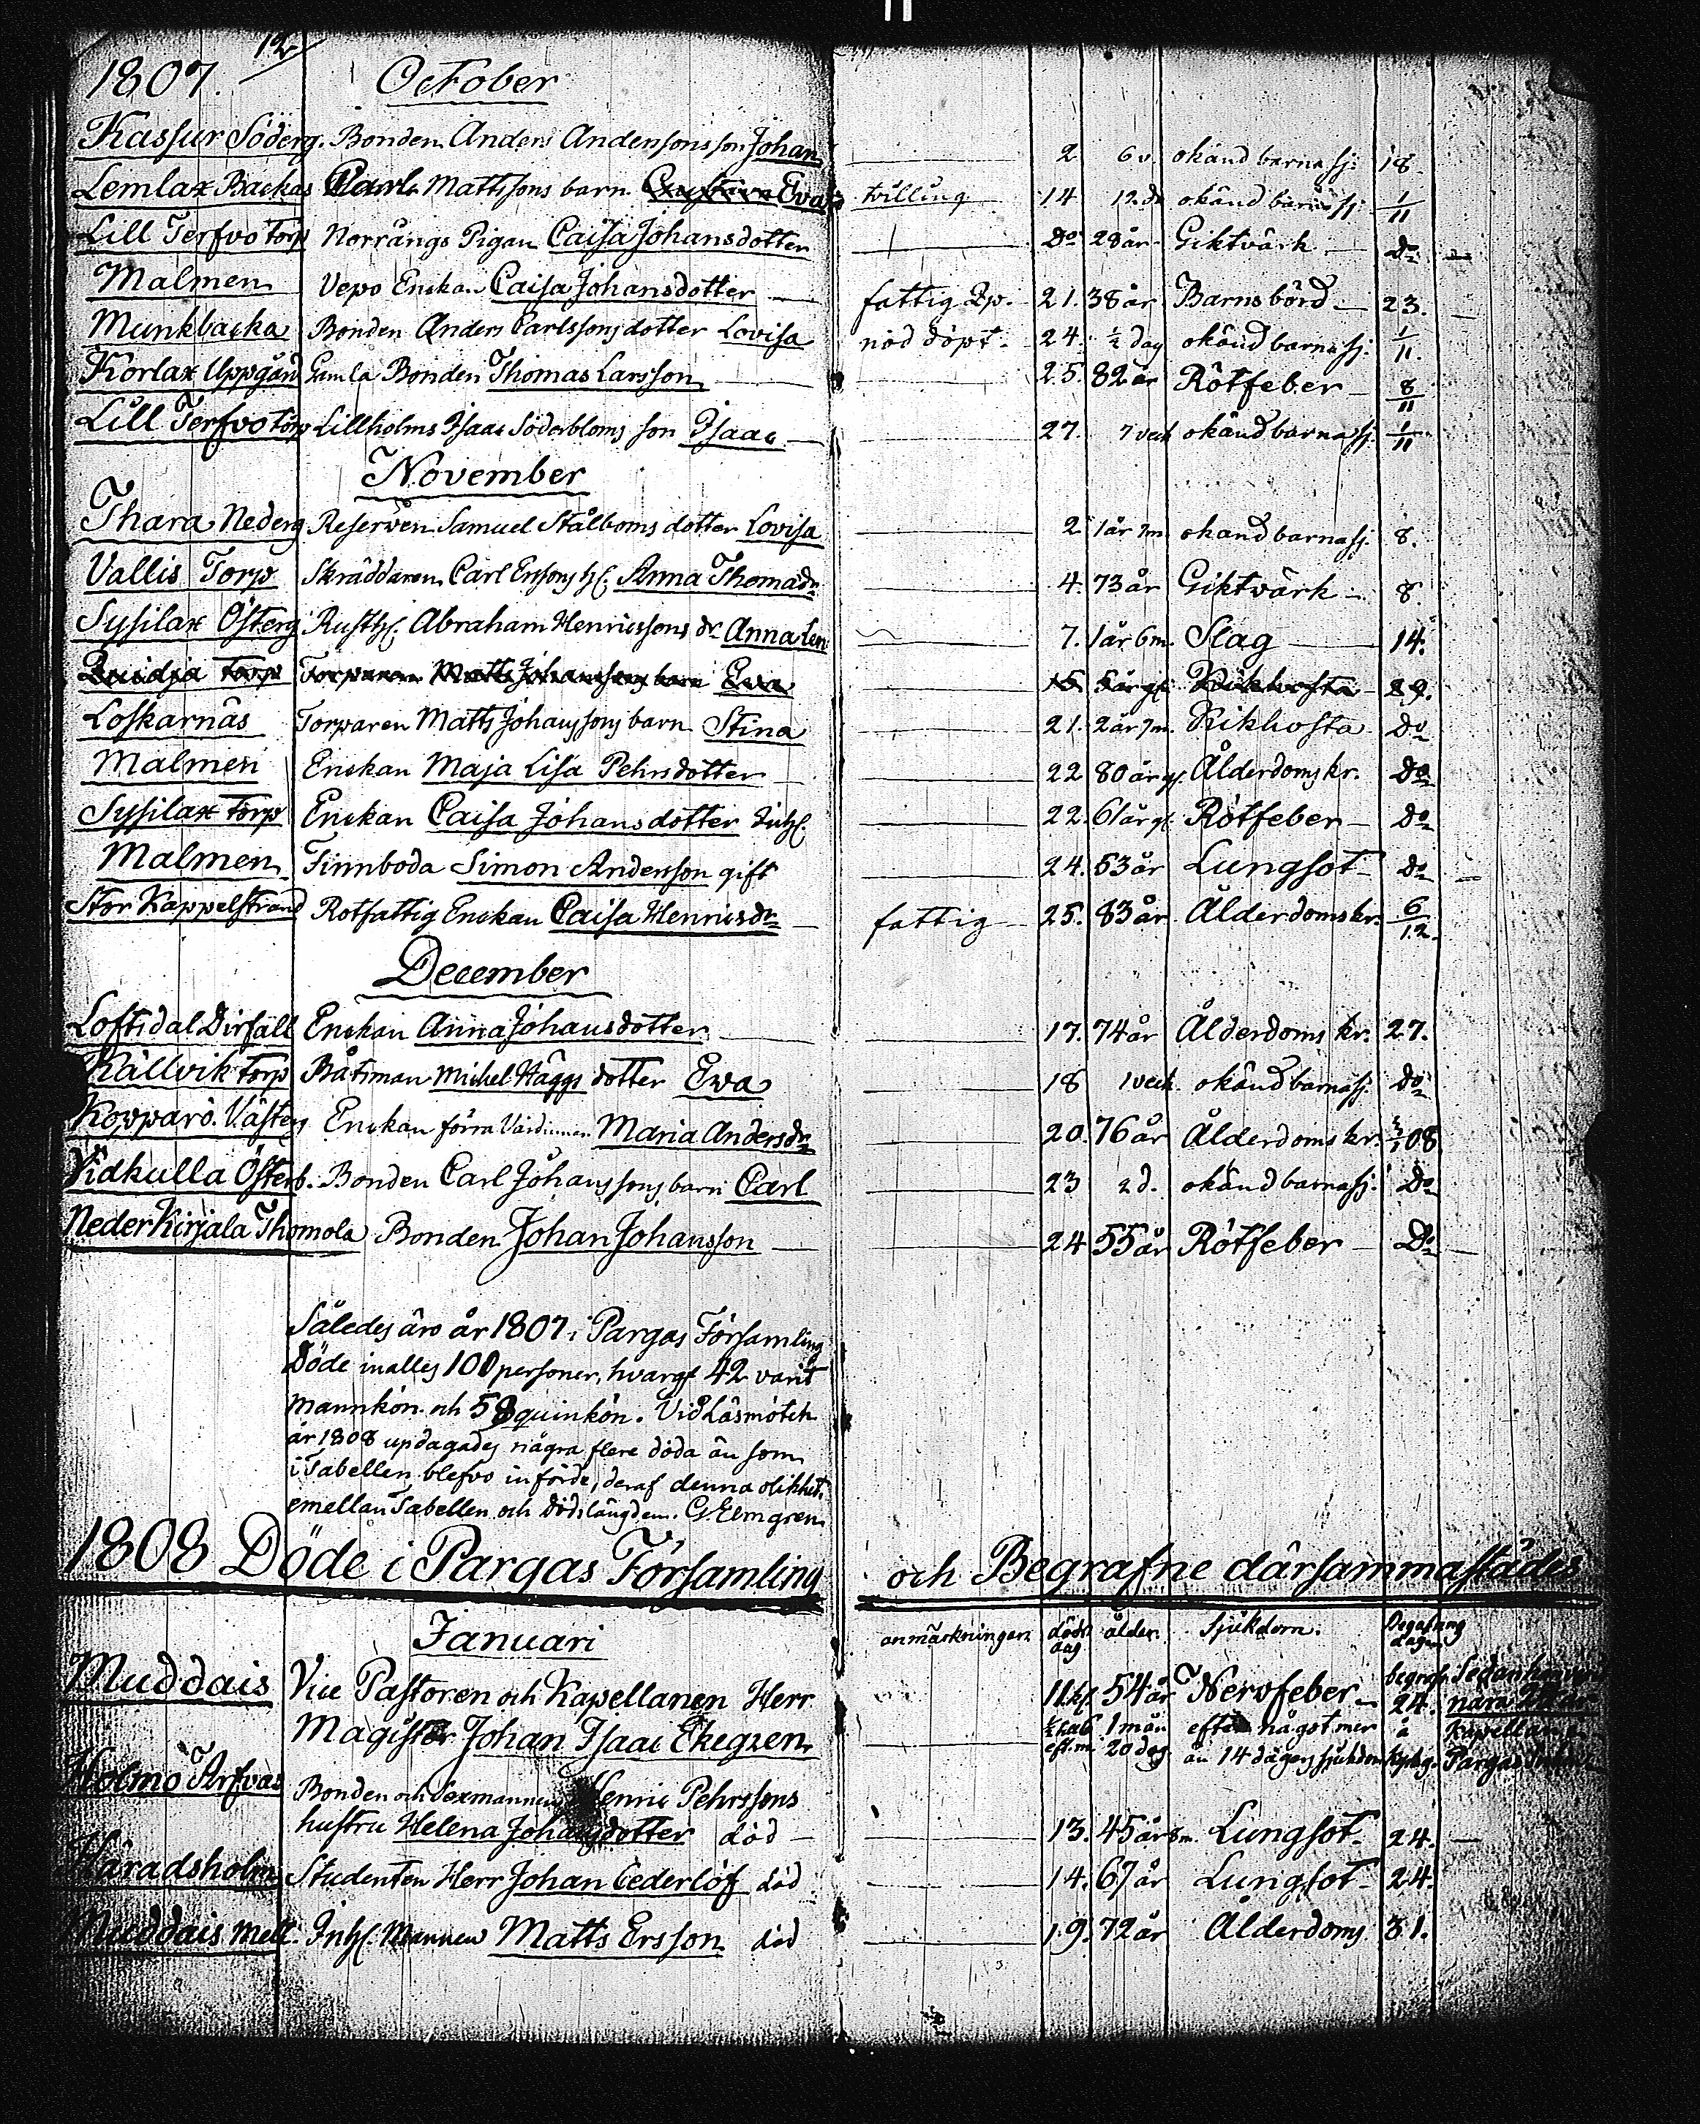 12
1807. October
Kassur Söderg. Bonden Anders Andersons son Johan 2 6 v. okänd barnasj. 18.
Lemlax Backas Carl Mattssons barn Gustava Eva tvilling 14 12 d. okänd barnasj. 1/11
Lill Terfvo Torp Norrångs Pigan Caisa Johansdotter Do 28 år Giktvärk Do
Malmen Vepo Enckan Caisa Johansdotter fattig 21. 38 år Barnsbörd 23.
Munkbacka Bonden Anders Carlssons dotter Lovisa nöd döpt. 24. ½ dag okänd barnasj. 1/11.
Korlax Uppgård Gamla Bonden Thomas Larsson 25. 82 år Rötfeber 8/11
Lill Terfvo Torp Lillholms Isaac Söderbloms son Isaac 27. 7 veck okänd barnasj. 1/11
November
Thara Nederg Reserven Samuel Stålboms dotter Lovisa 2 1 år 7 m. okand barnasj. 8.
Vallis Torp Skräddaren Carl Erssons h. Anna Thomadr 4. 73 år Giktvärk 8.
Sysilax Österg Rusth. Abraham Henricssons dr Anna Len 7. 1 år 6 m. Slag 14.
Qvidja Torp Torparen Matts Johanssons barn Eva 15 5 år gl. Kikhosta 29.
Loskarnäs Torparen Matts Johanssons barn Stina 21. 2 år 7 m. Kikhosta Do
Malmen Enckan Maja Lisa Pehrsdotter 22 80 år gl. Ålderdoms kr. Do
Sysilax Torp Enckan Caisa Johansdotter Inh. 22. 61 år gl. Rötfeber Do
Malmen Finnboda Simon Anderson gift 24. 53 år Lungsot Do
Stor Kappelstrand Rotfattig Enckan Caisa Henricsdr fattig 25. 83 år Ålderdomskr. 6/12.
December
Loftsdal Dirfall Enckan Anna Johansdotter 17. 74 år Ålderdoms kr. 27.
Källvik Torp Båtsman Michel Häggs dotter Ewa 18 1 veck. okänd barnasj. Do
Kopparö Västerg Enckan förra Värdinnan Maria Andersdr 20. 76 år Ålderdoms kr. 08
Vidkulla Österb. Bonden Carl Johanssons barn Carl 23 2 d. okänd barnasj. Do
Neder Kirjala Thomola Bonden Johan Johansson 24 55 år Rötfeber Do
Således äro år 1807 i Pargas Församling
Döde inalles 100 personer, hvaraf 42 varit
mannkön och 58 quinkön. Vid Läsmöten
år 1808 updagades några flere döda än som
i Tabellen blefvo införde, deraf denna olikhet
emellan Tabellen och Dödslängden. G. Elmgren
1808 Döde i Pargas Församling och Begrafne därsammastädes
Januari anmärkningar döds dag ålder. Sjukdom. Begrafning dagen
Muddais Vice Pastoren och Kapellanen Herr 11 kl. 54 år Nervfeber begrofs 24. Sedan han varit nära
Magister Johan Isaac Ekegren eft.m. 1 mån 20 dag efter något mer än 14 dagers sjukdom å kyrkog. Kapellan i Pargas
Holmo Arfvas Bonden och Sexmannen Henric Pehrssons
hustru Helena Johansdotter död 13. 45 år 8 m. Lungsot 24.
Häradsholm Studenten Herr Johan Cederlöf död 14. 67 år Lungsot 24.
Muddais Mell. Inh. Mannen Matts Ersson död 19. 72 år Ålderdoms 31.